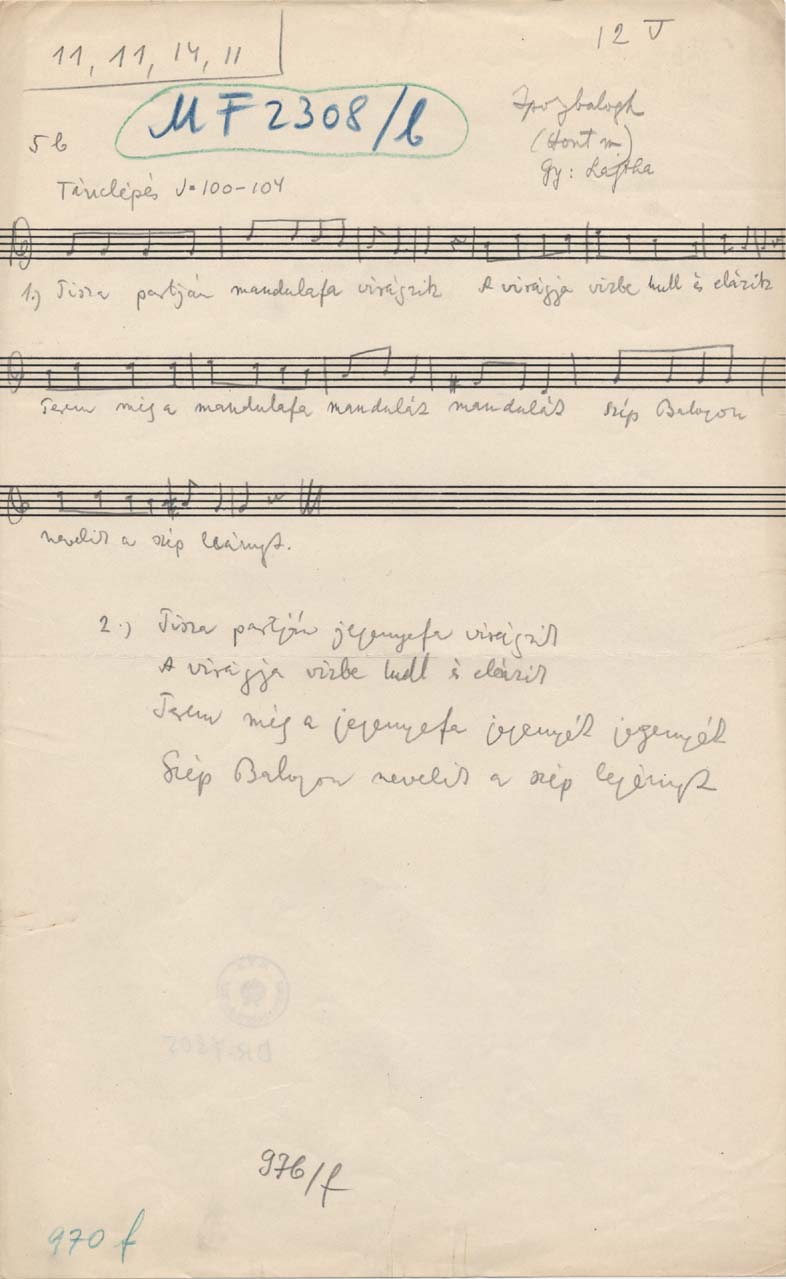 11, 11, 14, 11
12 V
MF 2308/b
Ipolybalogh
(Hont m)
Gy: Lajtha
5 b
Tánclépés ♩=100-104
1.) Tisza partján mandulafa virágzik A virágja vizbe hull és elázik
Terem még a mandulafa mandulát mandulát szép Balogon
nevelik a szép leányt.
2.) Tisza partján jegenyefa virágzik
A virágja vizbe hull és elázik
Terem még a jegenyefa jegenyét jegenyét
Szép Balogon nevelik a szép legényt
976/f
970 f